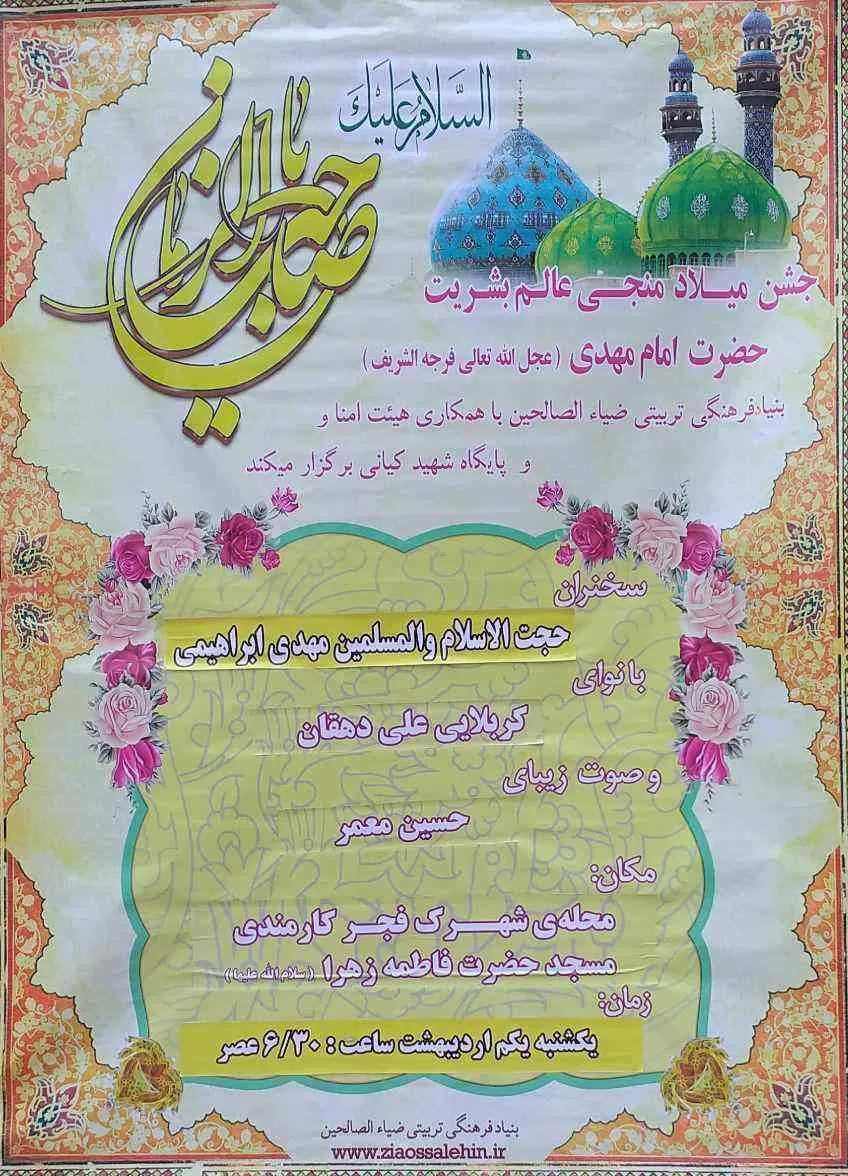 السلام علیک
یا صاحب الزمان
جشن میلاد منجی عالم بشریت
حضرت امام مهدی (عجل الله تعالی فرجه الشریف)
بنیاد فرهنگی تربیتی ضیاء الصالحین با همکاری هیئت امنا و
و پایگاه شهید کیانی برگزار میکند
سخنران
حجت الاسلام والمسلمین مهدی ابراهیمی
بانوای
کربلایی علی دهقان
و صوت زیبای
حسین معمر
مکان:
محله‌ی شهرک فجر کارمندی
مسجد حضرت فاطمه زهرا (سلام الله علیها)
زمان:
یکشنبه یکم اردیبهشت ساعت : ۶/۳۰ عصر
بنیاد فرهنگی تربیتی ضیاء الصالحین
www.ziaossalehin.ir